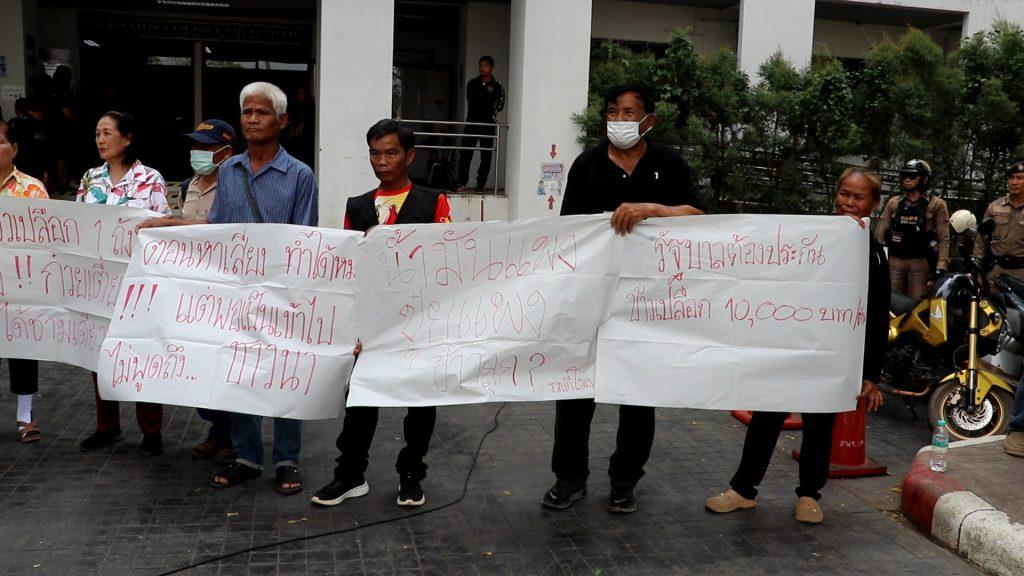 าวเปลือก 1 ถัง
!! ก๋วยเตี๋ย
ได้ชามเดียว
ตอนหาเสียง ทำได้หม
!!! แต่พอ เข้าไป
ไม่พูดถึง... ชาวนา
น้ำมันแพง
ปุ๋ยแพง
รัฐบาลต้องประกัน
ข้าวเปลือก 10,000 บาท/ตัน